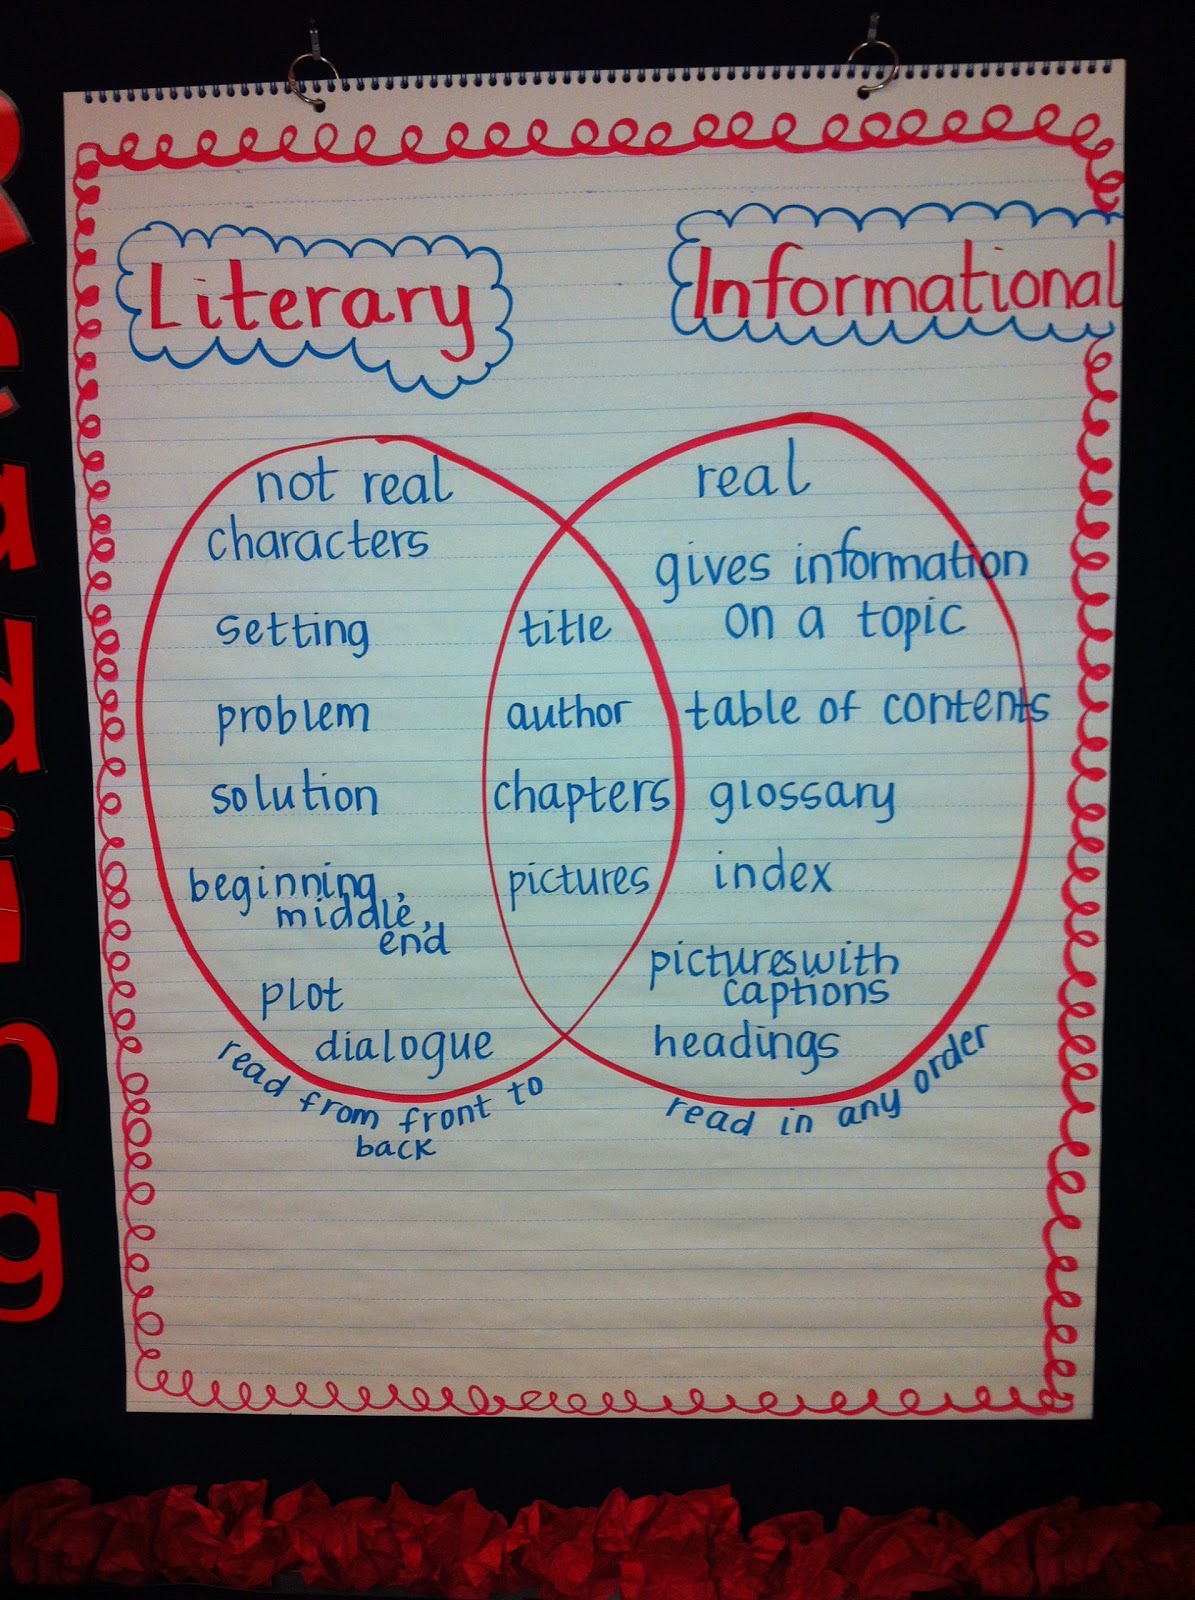 Literary
Informational
not real
characters
setting
problem
solution
beginning,
middle,
end
plot
dialogue
read from front to
back
title
author
chapters
pictures
real
gives information
on a topic
table of contents
glossary
index
pictures with
captions
headings
read in any order